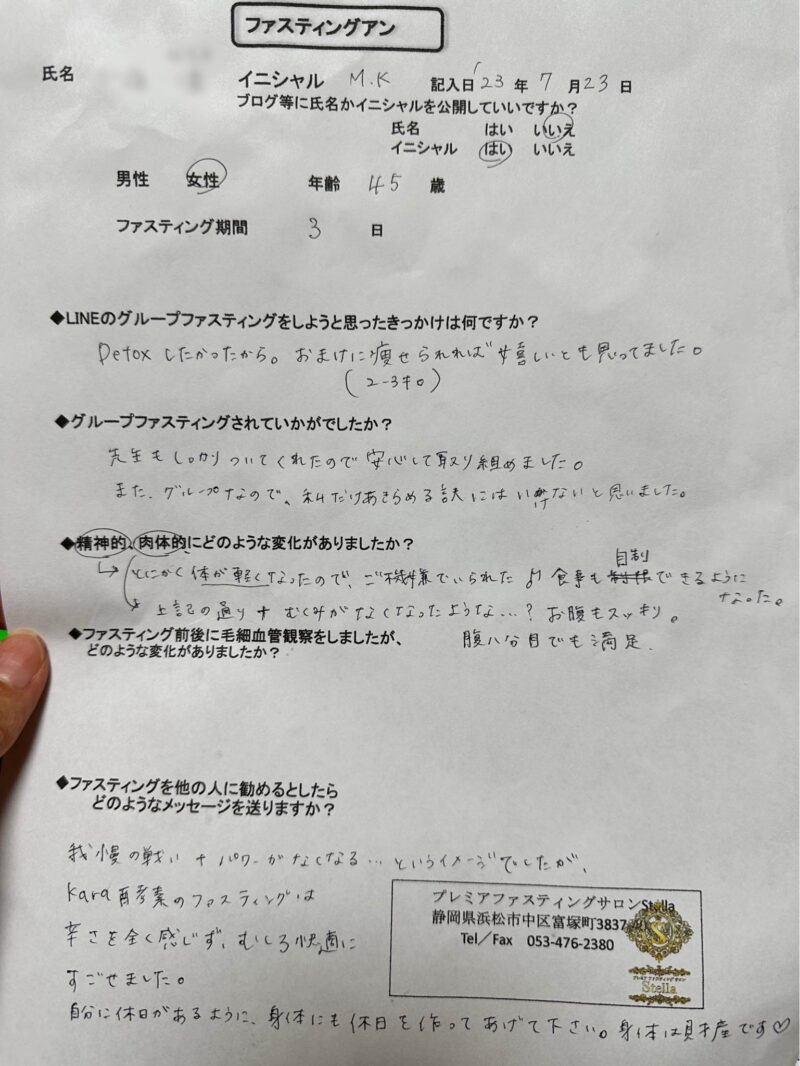 ファスティングアン
氏名 イニシャル M.K 記入日 '23 年 7 月 23 日
ブログ等に氏名かイニシャルを公開していいですか？
氏名 はい いいえ
イニシャル はい いいえ
男性 女性 年齢 45 歳
ファスティング期間 3 日
◆LINEのグループファスティングをしようと思ったきっかけは何ですか？
Detoxしたかったから。おまけに痩せられれば嬉しいとも思ってました。
(2-3キロ)
◆グループファスティングされていかがでしたか？
先生もしっかりついてくれたので安心して取り組めました。
また、グループなので、私だけあきらめる訳にはいけないと思いました。
◆精神的、肉体的にどのような変化がありましたか？
とにかく体が軽くなったので、ご機嫌でいられた♪ 食事も自制できるように
なった。
上記の通り + むくみがなくなったような…？お腹もスッキリ。
腹八分目でも満足.
◆ファスティング前後に毛細血管観察をしましたが、
どのような変化がありましたか？
◆ファスティングを他の人に勧めるとしたら
どのようなメッセージを送りますか？
我慢の戦い + パワーがなくなる…というイメージでしたが、
Kara酵素のファスティングは
辛さを全く感じず、むしろ快適に
すごせました。
自分に休日があるように、身体にも休日を作ってあげて下さい。身体は財産です♡
プレミアファスティングサロンStella
静岡県浜松市中区富塚町3837
Tel／Fax 053-476-2380
S
プレミア ファスティング サロン
Stella